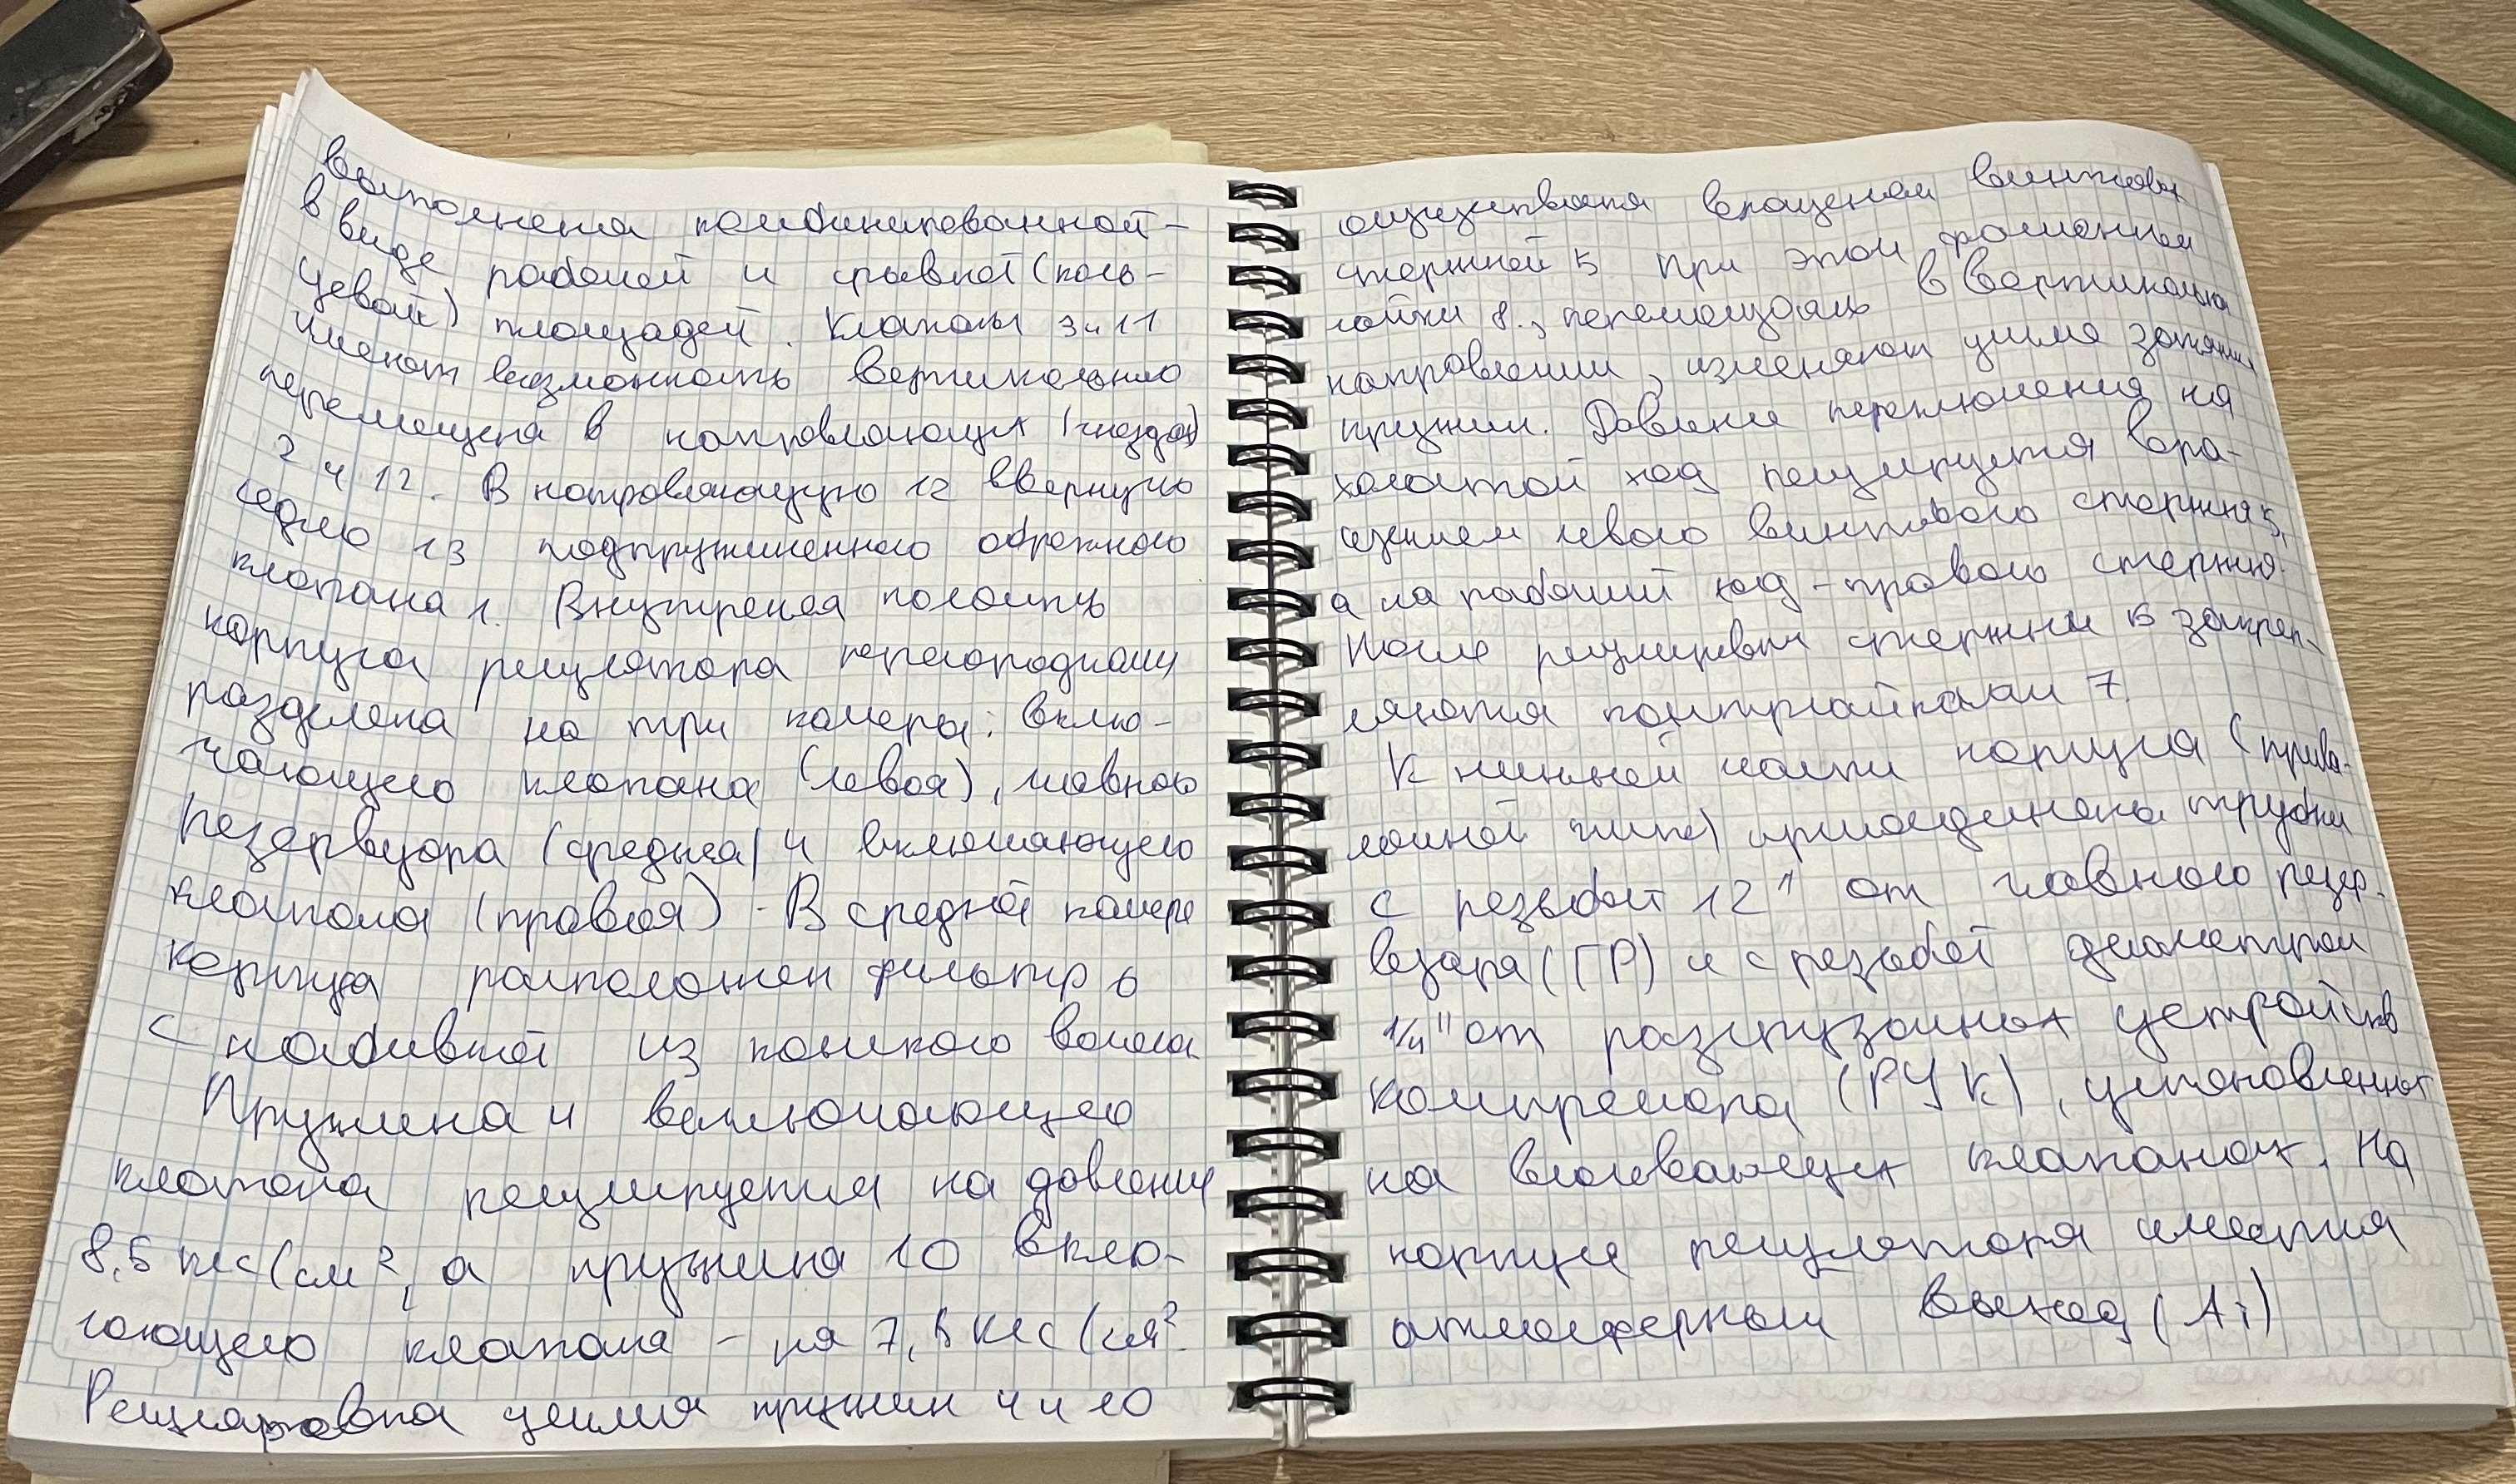 выполнена комбинированной –
в виде рабочей и срывной (коль-
цевой) площадей. Клапаны 3 и 11
имеют возможность вертикально
перемещатся в направляющих (гнездах)
2 и 12. В направляющую 12 ввернуто
седло 13 подпружиненного обратного
клапана 1. Внутреняя полость
корпуса регулятора перегородками
разделена на три камеры: вклю-
чающего клапана (левая), главного
резервуара (средняя) и включающего
клапана (правая). В средней камере
корпуса расположен фильтр 6
с набивкой из конского волоса.
Пружина 4 включающего
клапана регулируется на давление
8,5 кгс/см², а пружина 10 вклю-
чающего клапана – на 7,5 кгс/см².
Регулировка усилия пружин 4 и 10
осуществляется вращением винтовых
стержней 5 При этом фасонными
гайки 8, перемещаясь в вертикальном
направлении, изменяют усилие затяжки
пружин. Давление переключения на
холостой ход регулируется вра-
щением левого винтового стержня 5,
а на рабочий ход – правого стержня.
После регулировки стержни 5 закреп-
ляются контргайками 7.
К нижней части корпуса (прива-
лочной плите) присоединены трубки
с резьбой 12" от главного резер-
вуара (ГР) и с резьбой диаметром
1/4" от разгрузочных устройств
компресора (РУК), установленных
на всасывающих клапанах. На
корпусе регулятора имеется
атмосферный выход (Ат)